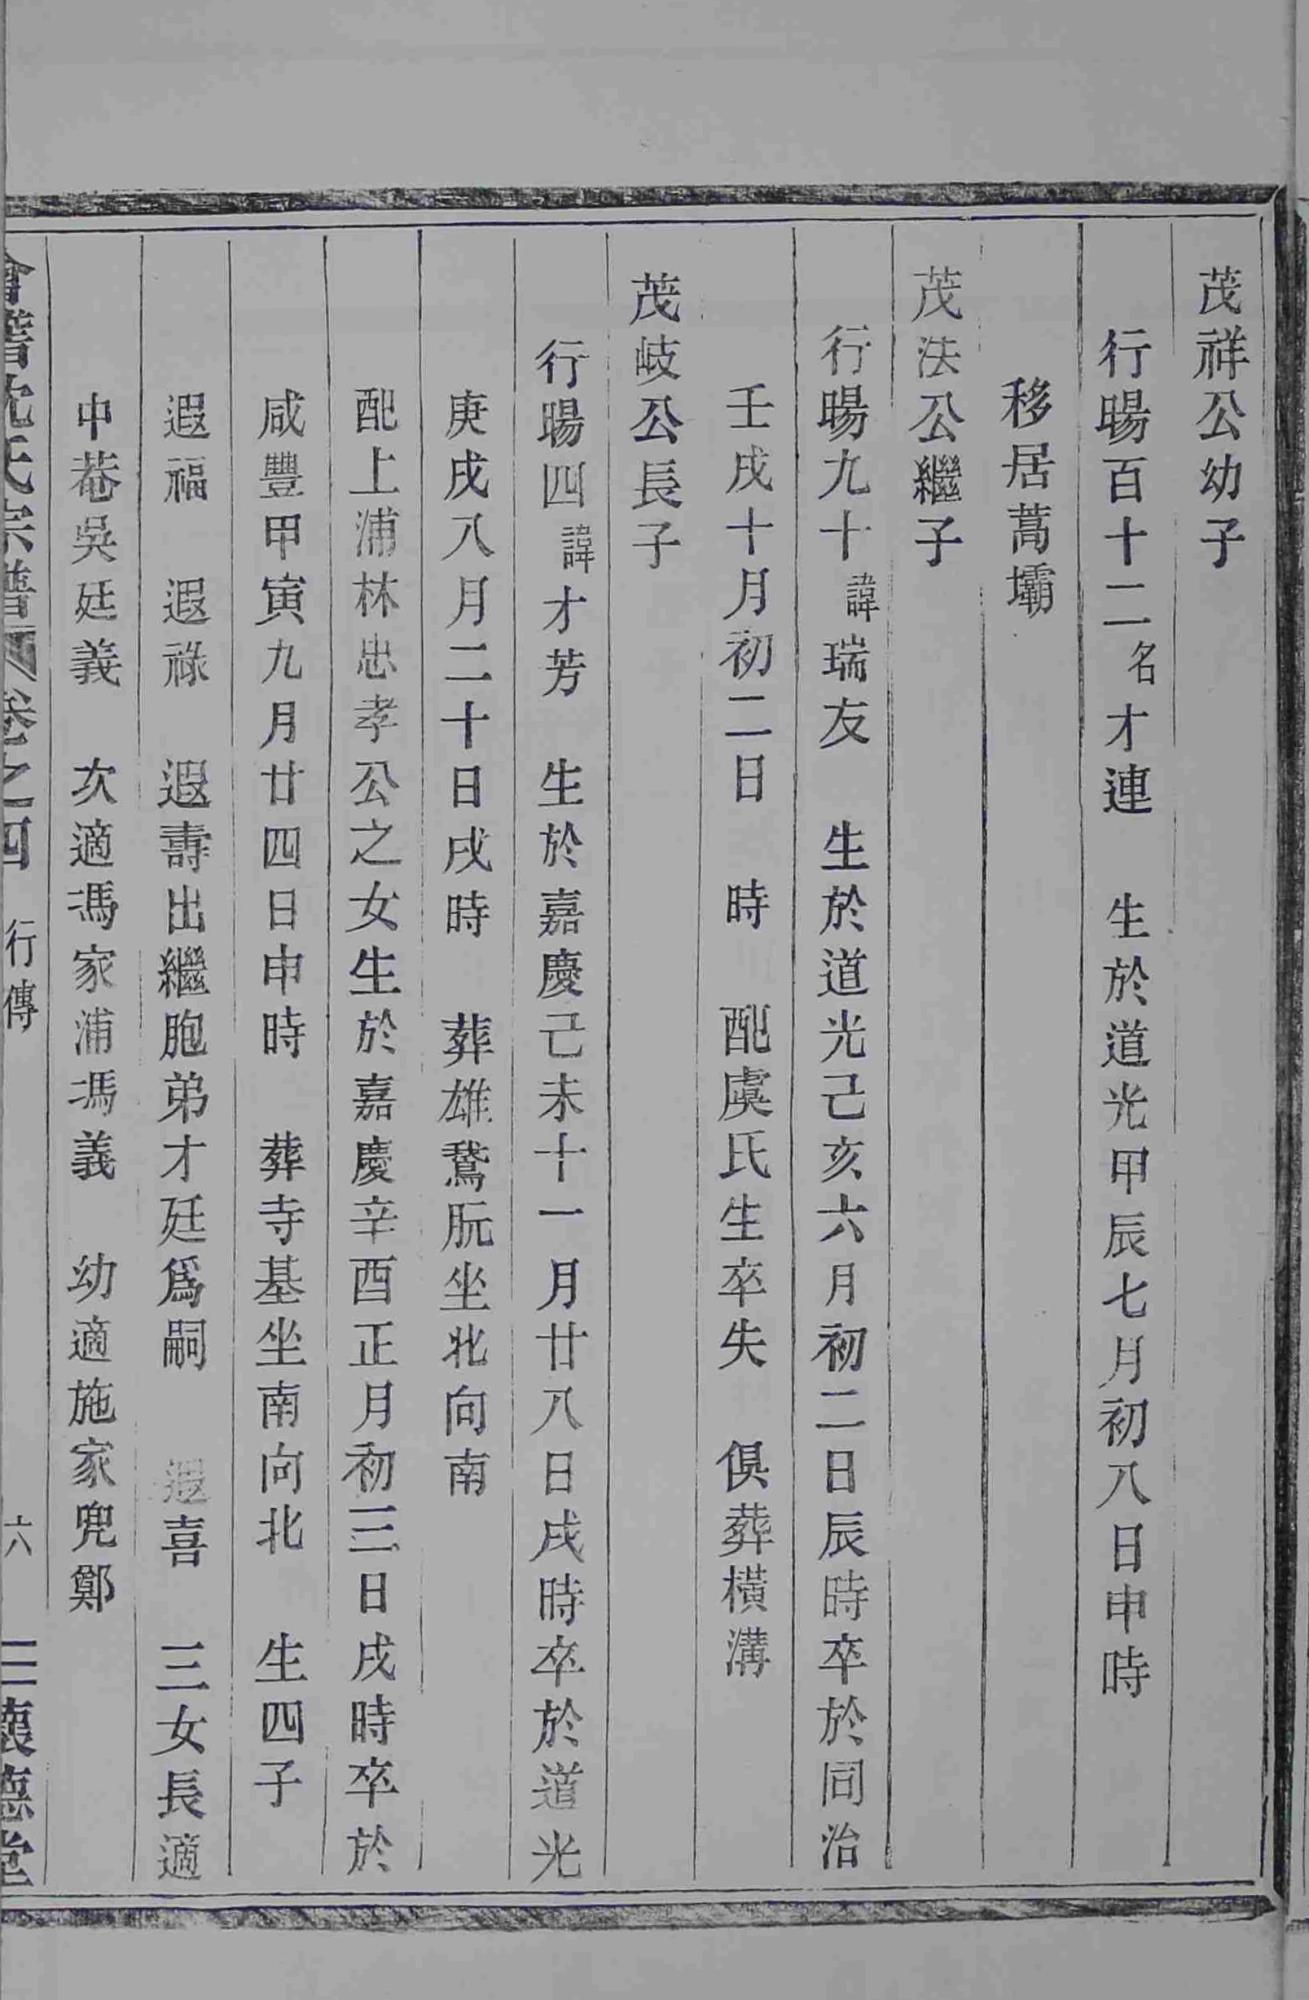 茂祥公幼子
行暘百十二名才連　生於道光甲辰七月初八日申時
移居萬壩
茂法公繼子
行暘九十諱瑞友　生於道光己亥六月初二日辰時卒於同治
壬戌十月初二日　時　配虞氏生卒失　俱葬橫溝
茂岐公長子
行暘四諱才芳　生於嘉慶己未十一月廿八日戌時卒於道光
庚戌八月二十日戌時　葬雄鵞朊坐北向南
配上浦林忠孝公之女生於嘉慶辛酉正月初三日戌時卒於
咸豐甲寅九月廿四日申時　葬寺基坐南向北　生四子
遐福　遐祿　遐壽出繼胞弟才廷爲嗣　遐喜　三女長適
中菴吳廷義　次適馮家浦馮義　幼適施家兜鄭
會稽沈氏宗譜　卷之四　行傳　六　三懷德堂